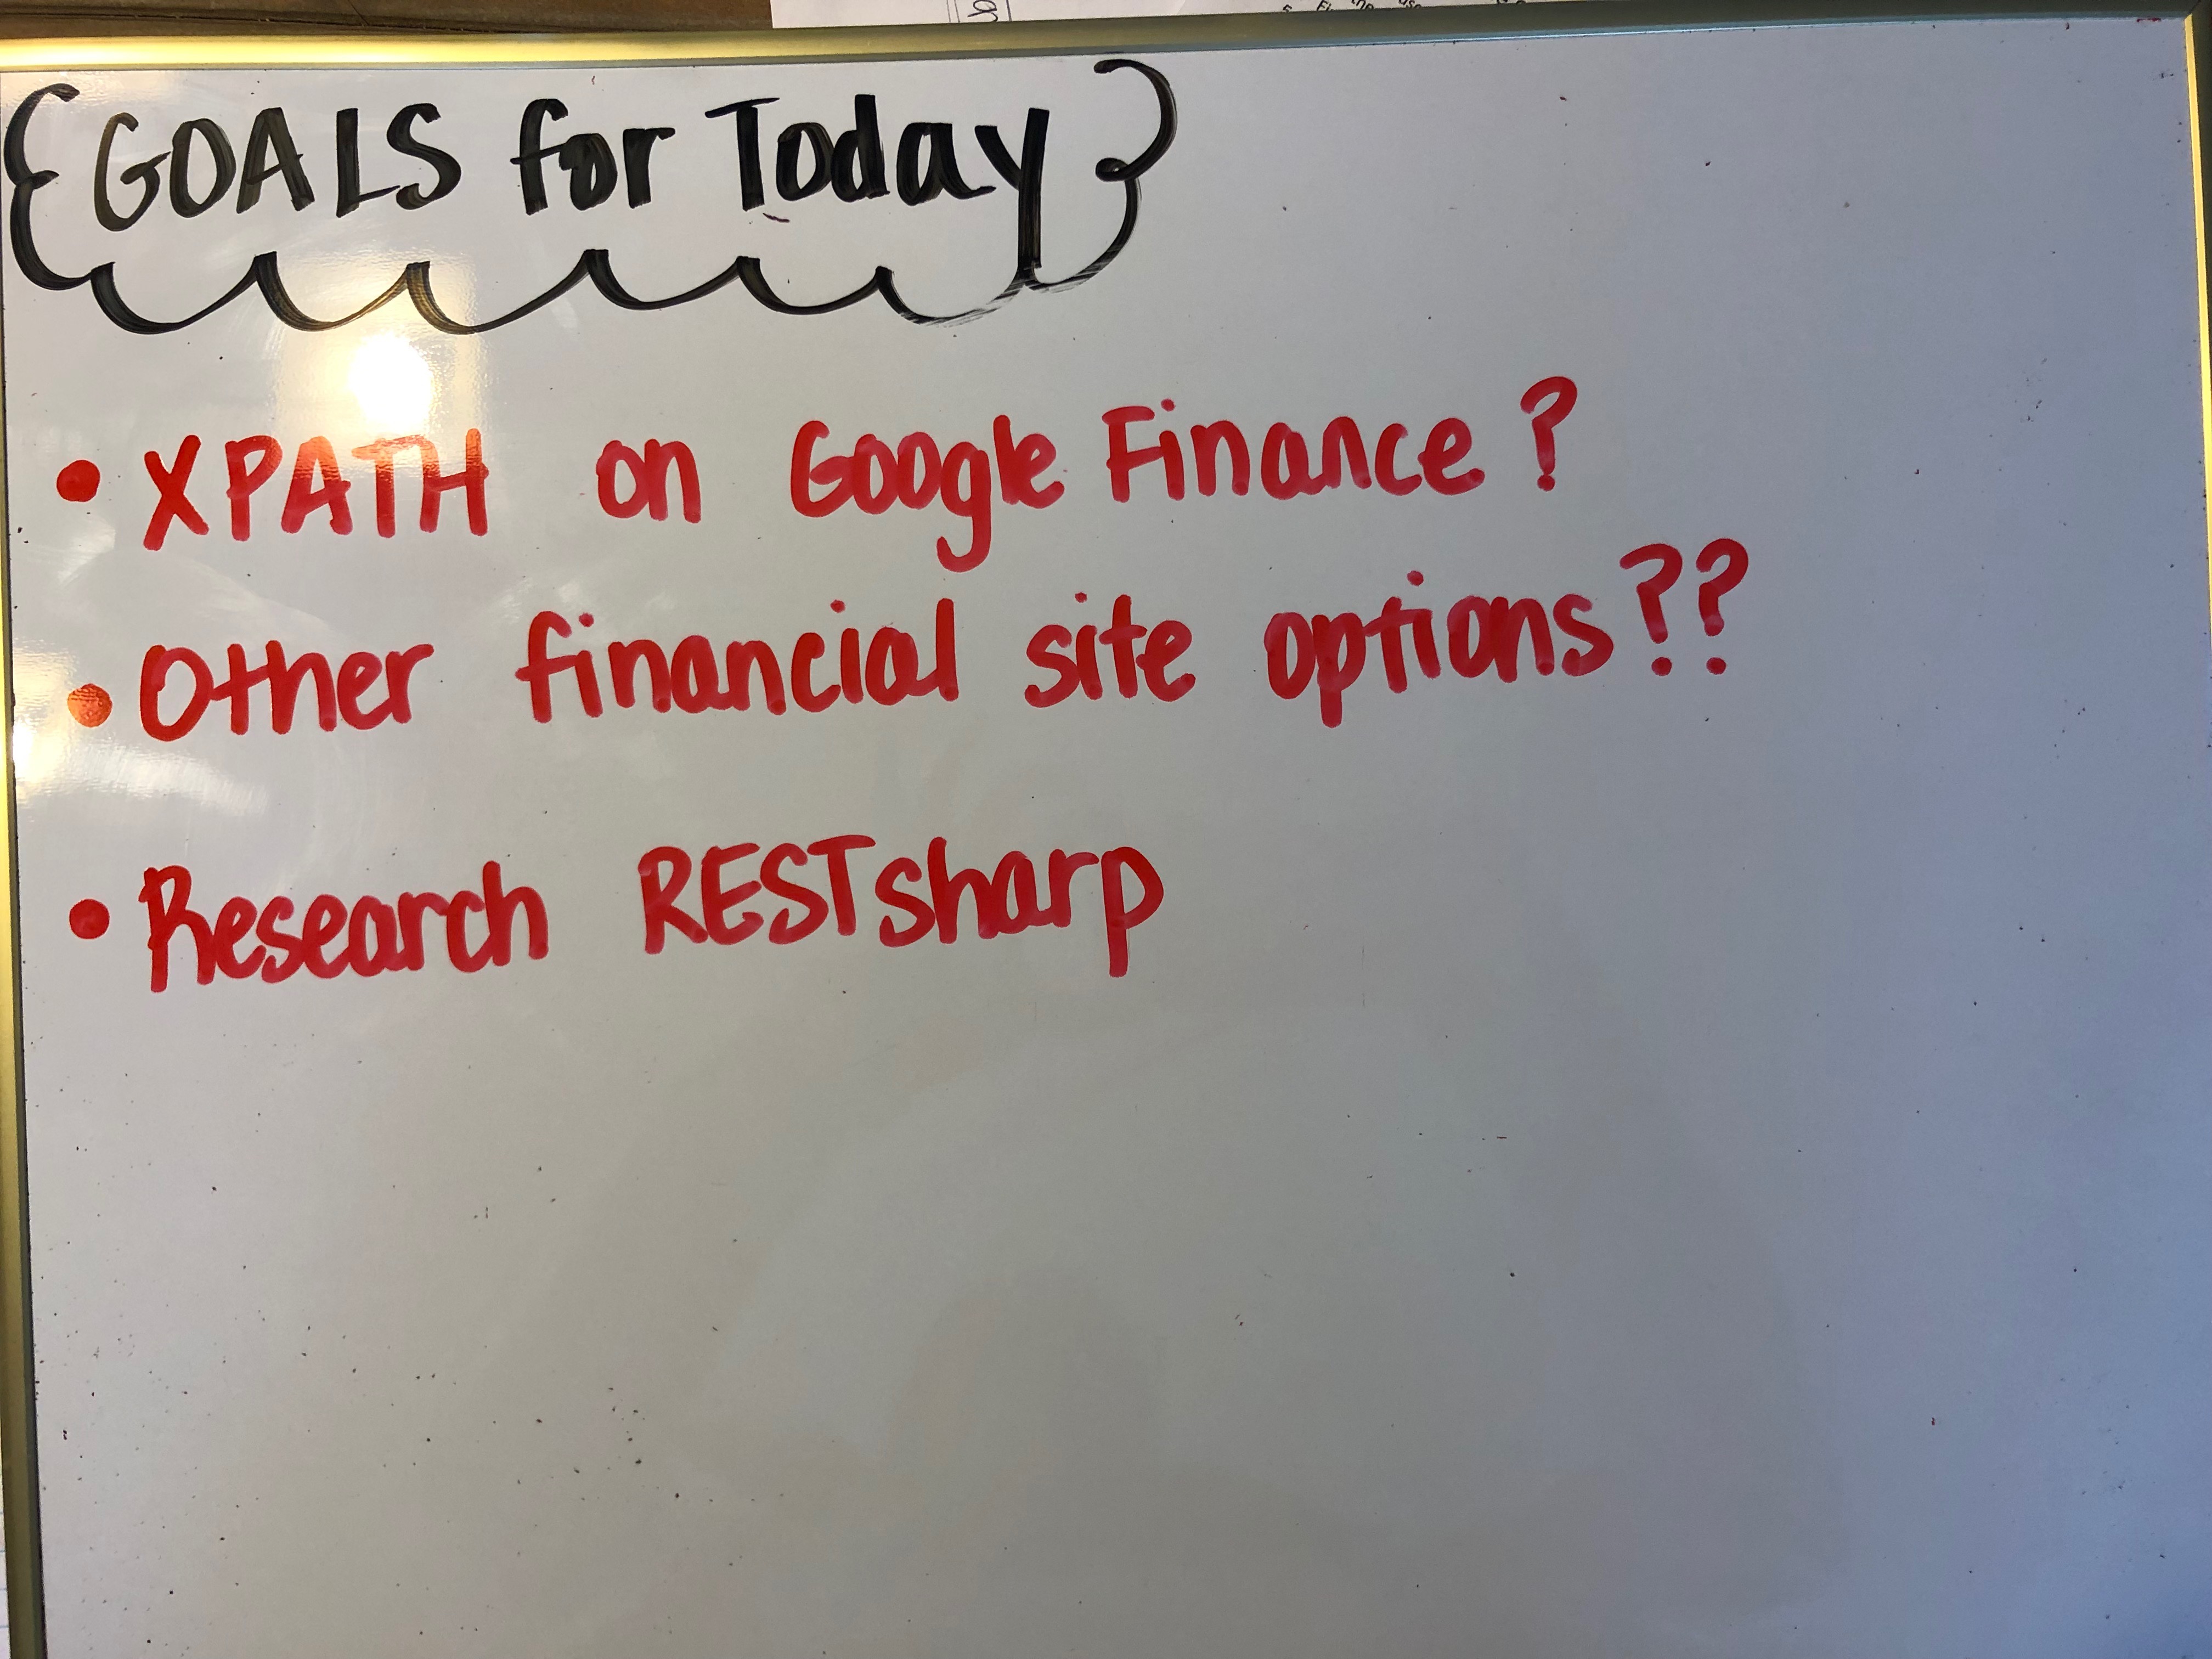 GOALS for Today
• XPATH on Google Finance?
• Other financial site options??
• Research RESTsharp